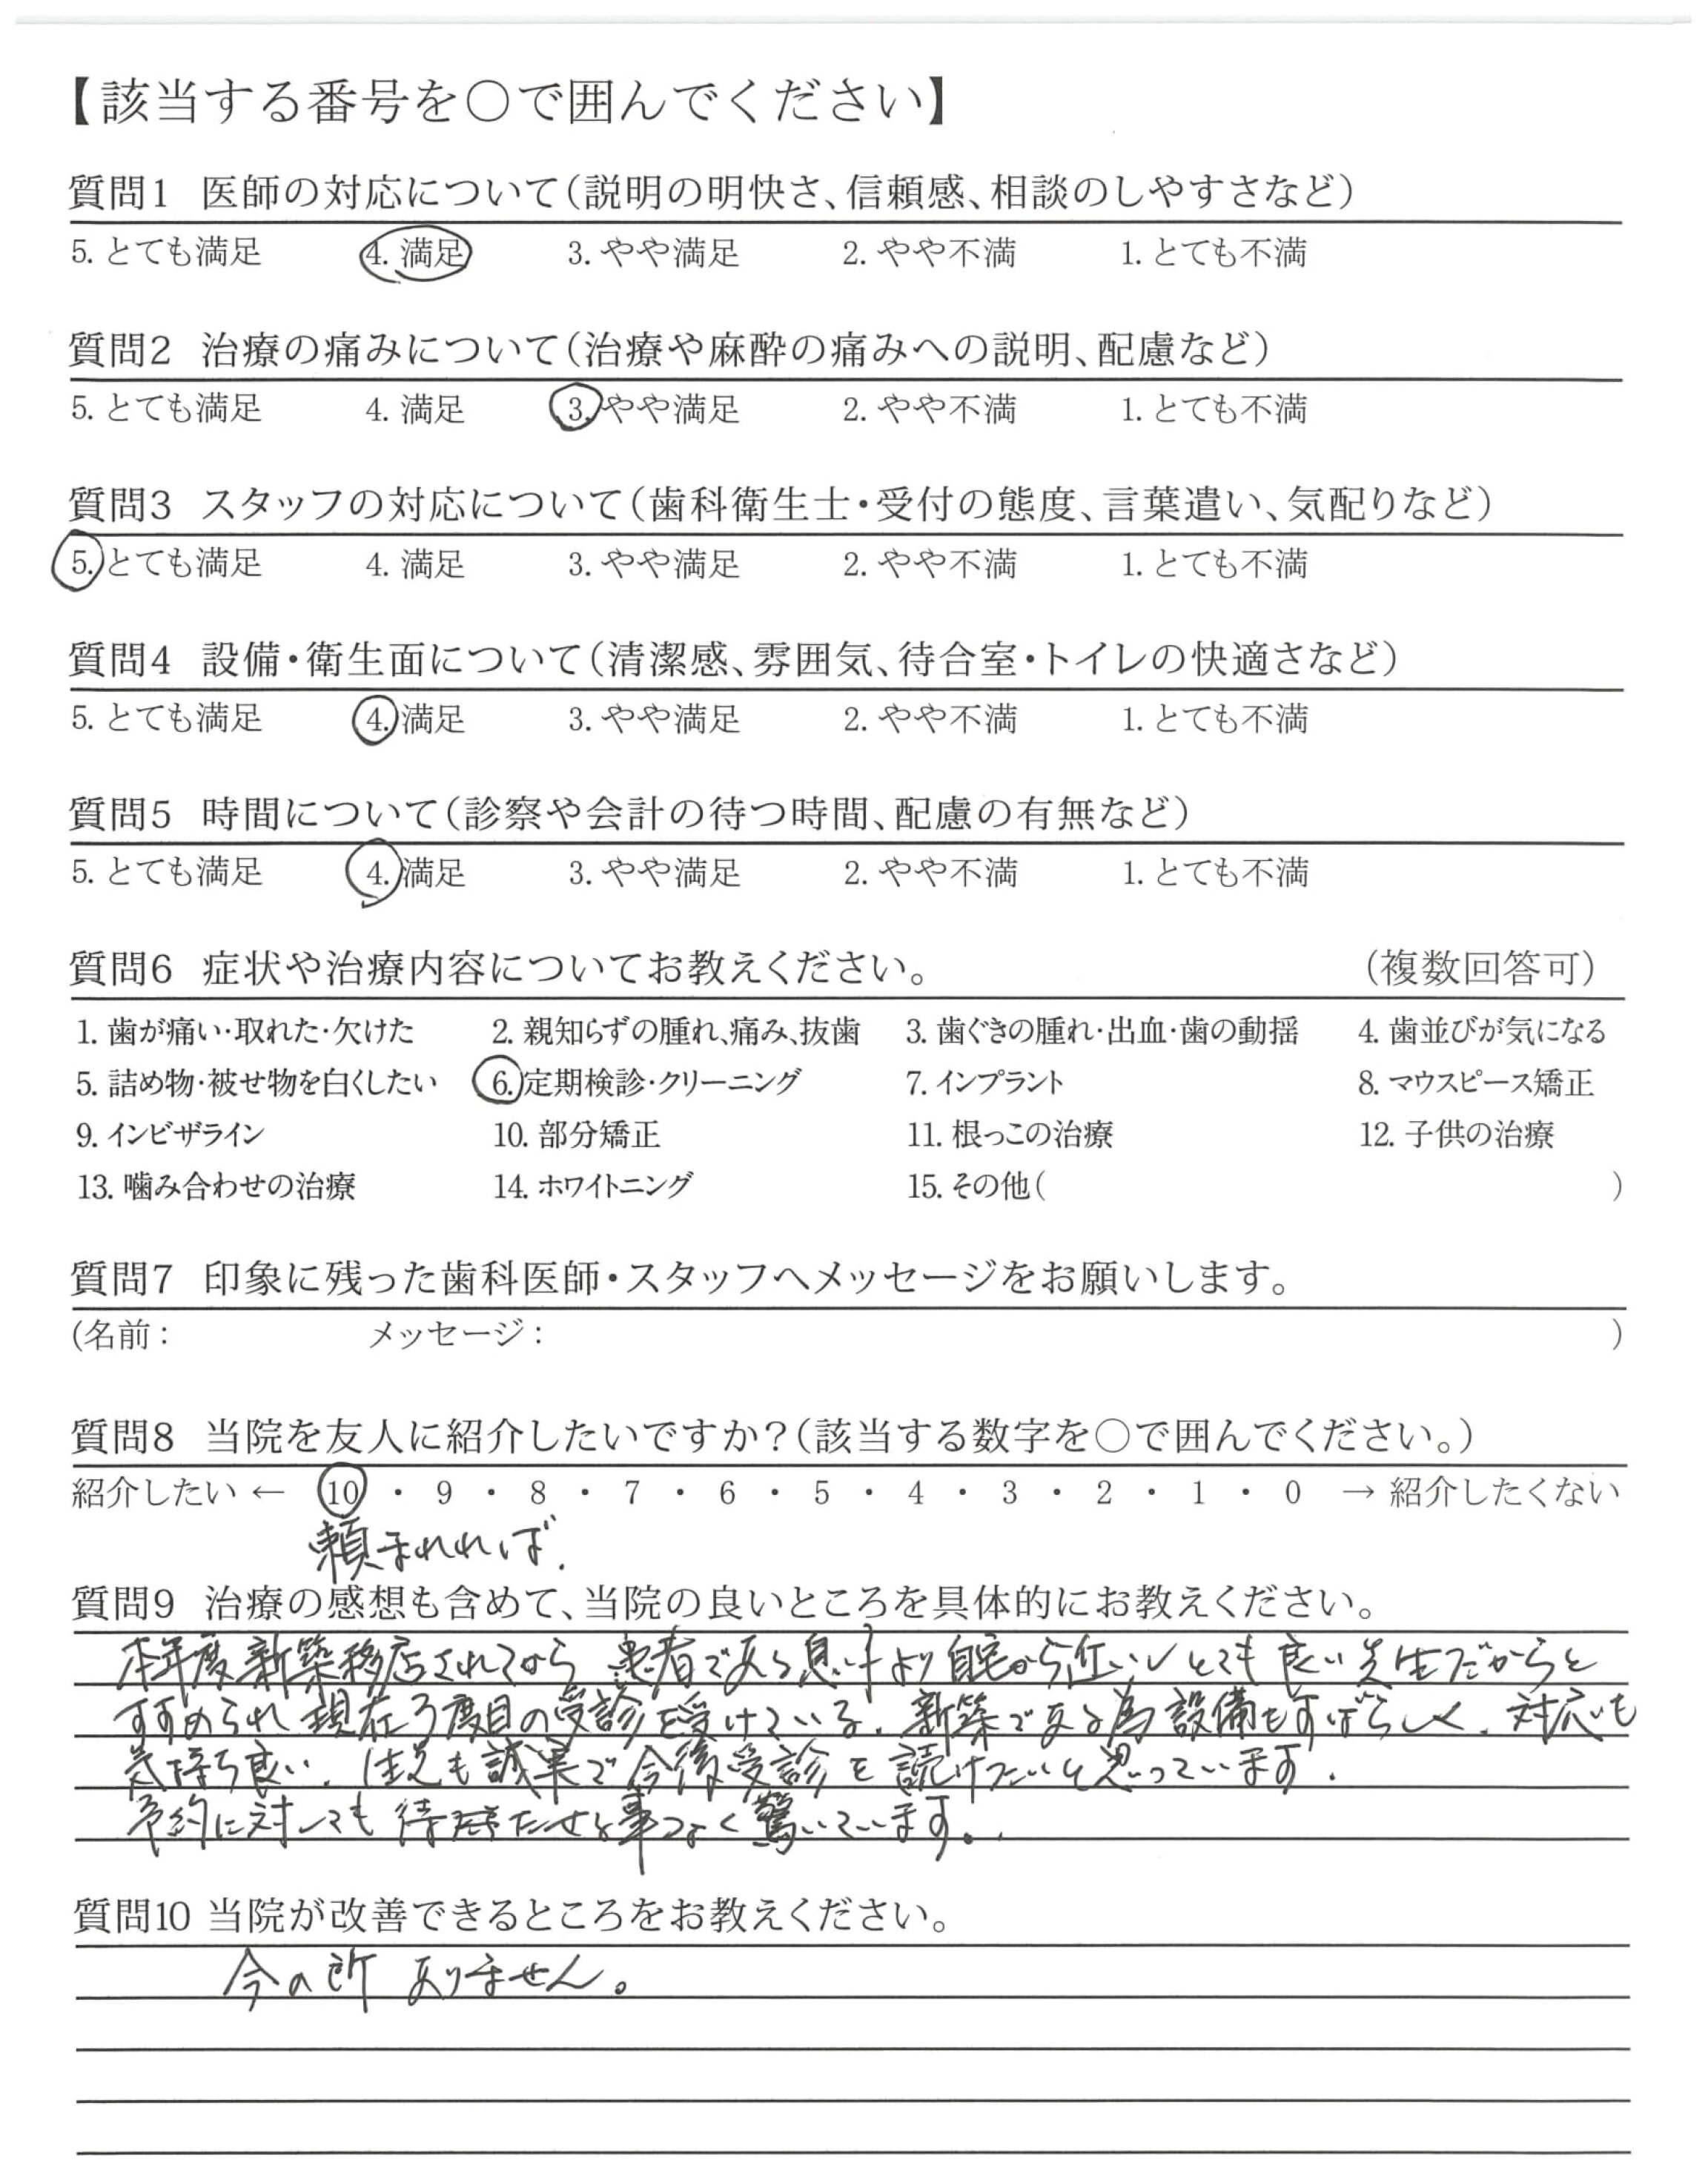 【該当する番号を○で囲んでください】
質問1 医師の対応について（説明の明快さ、信頼感、相談のしやすさなど）
5. とても満足 4. 満足 3. やや満足 2. やや不満 1. とても不満
質問2 治療の痛みについて（治療や麻酔の痛みへの説明、配慮など）
5. とても満足 4. 満足 3. やや満足 2. やや不満 1. とても不満
質問3 スタッフの対応について（歯科衛生士・受付の態度、言葉遣い、気配りなど）
5. とても満足 4. 満足 3. やや満足 2. やや不満 1. とても不満
質問4 設備・衛生面について（清潔感、雰囲気、待合室・トイレの快適さなど）
5. とても満足 4. 満足 3. やや満足 2. やや不満 1. とても不満
質問5 時間について（診察や会計の待つ時間、配慮の有無など）
5. とても満足 4. 満足 3. やや満足 2. やや不満 1. とても不満
質問6 症状や治療内容についてお教えください。 （複数回答可）
1. 歯が痛い・取れた・欠けた 2. 親知らずの腫れ、痛み、抜歯 3. 歯ぐきの腫れ・出血・歯の動揺 4. 歯並びが気になる
5. 詰め物・被せ物を白くしたい 6. 定期検診・クリーニング 7. インプラント 8. マウスピース矯正
9. インビザライン 10. 部分矯正 11. 根っこの治療 12. 子供の治療
13. 噛み合わせの治療 14. ホワイトニング 15. その他（ ）
質問7 印象に残った歯科医師・スタッフへメッセージをお願いします。
(名前： メッセージ： )
質問8 当院を友人に紹介したいですか？（該当する数字を○で囲んでください。）
紹介したい ← 10 ・ 9 ・ 8 ・ 7 ・ 6 ・ 5 ・ 4 ・ 3 ・ 2 ・ 1 ・ 0 → 紹介したくない
頼まれれば.
質問9 治療の感想も含めて、当院の良いところを具体的にお教えください。
本年度新築移店されてから 患者である息子より自宅から近いしとても良い先生だからと
すすめられ現在3度目の受診を受けている. 新築である為設備もすばらしく、対応も
気持ち良い. 先生も誠実で今後受診を続けたいと思っています.
予約に対しても待たせる事なく驚いています.
質問10 当院が改善できるところをお教えください。
今の所 ありません。